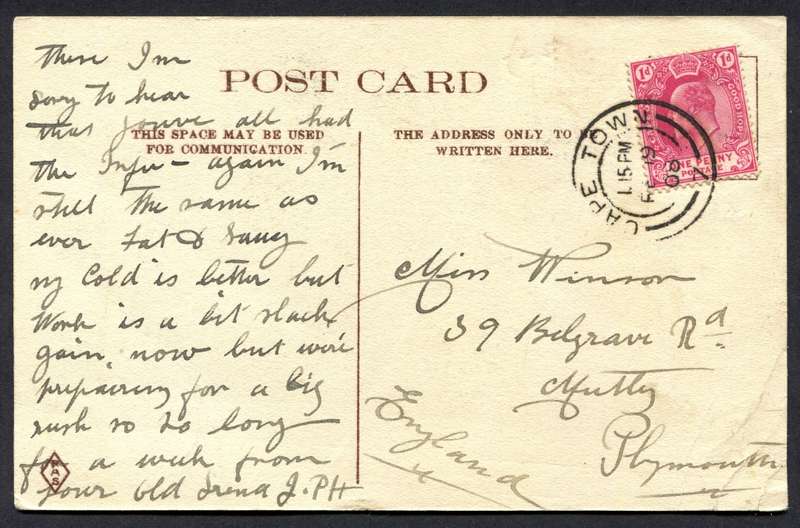 POST CARD
THIS SPACE MAY BE USED
FOR COMMUNICATION.
THE ADDRESS ONLY TO
WRITTEN HERE.
there I'm
sorry to hear
that you've all had
the Infu- again I'm
still the same as
ever Fat & Saucy
my Cold is better but
Work is a bit slack
gain, now but we're
prepairing for a big
rush so So long
for a week from
your old Frend J.PH
Miss Winson
39 Belgrave Rd
Mutley
Plymouth
England
CAPE TOWN
1.15 PM
19
08
12
1d
1d
GOOD HOPE
ONE PENNY
POSTAGE